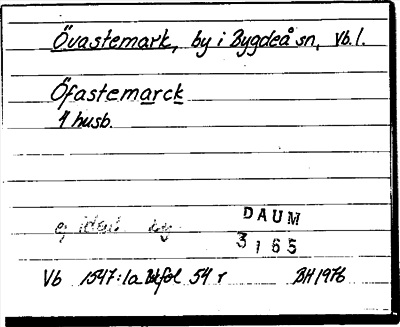 Övastemark, by i Bygdeå sn, Vb.l.
Öfastemarck
4 husb.
ej by
DAUM
3165
Vb 1547:1a fol 54 r BH 1976